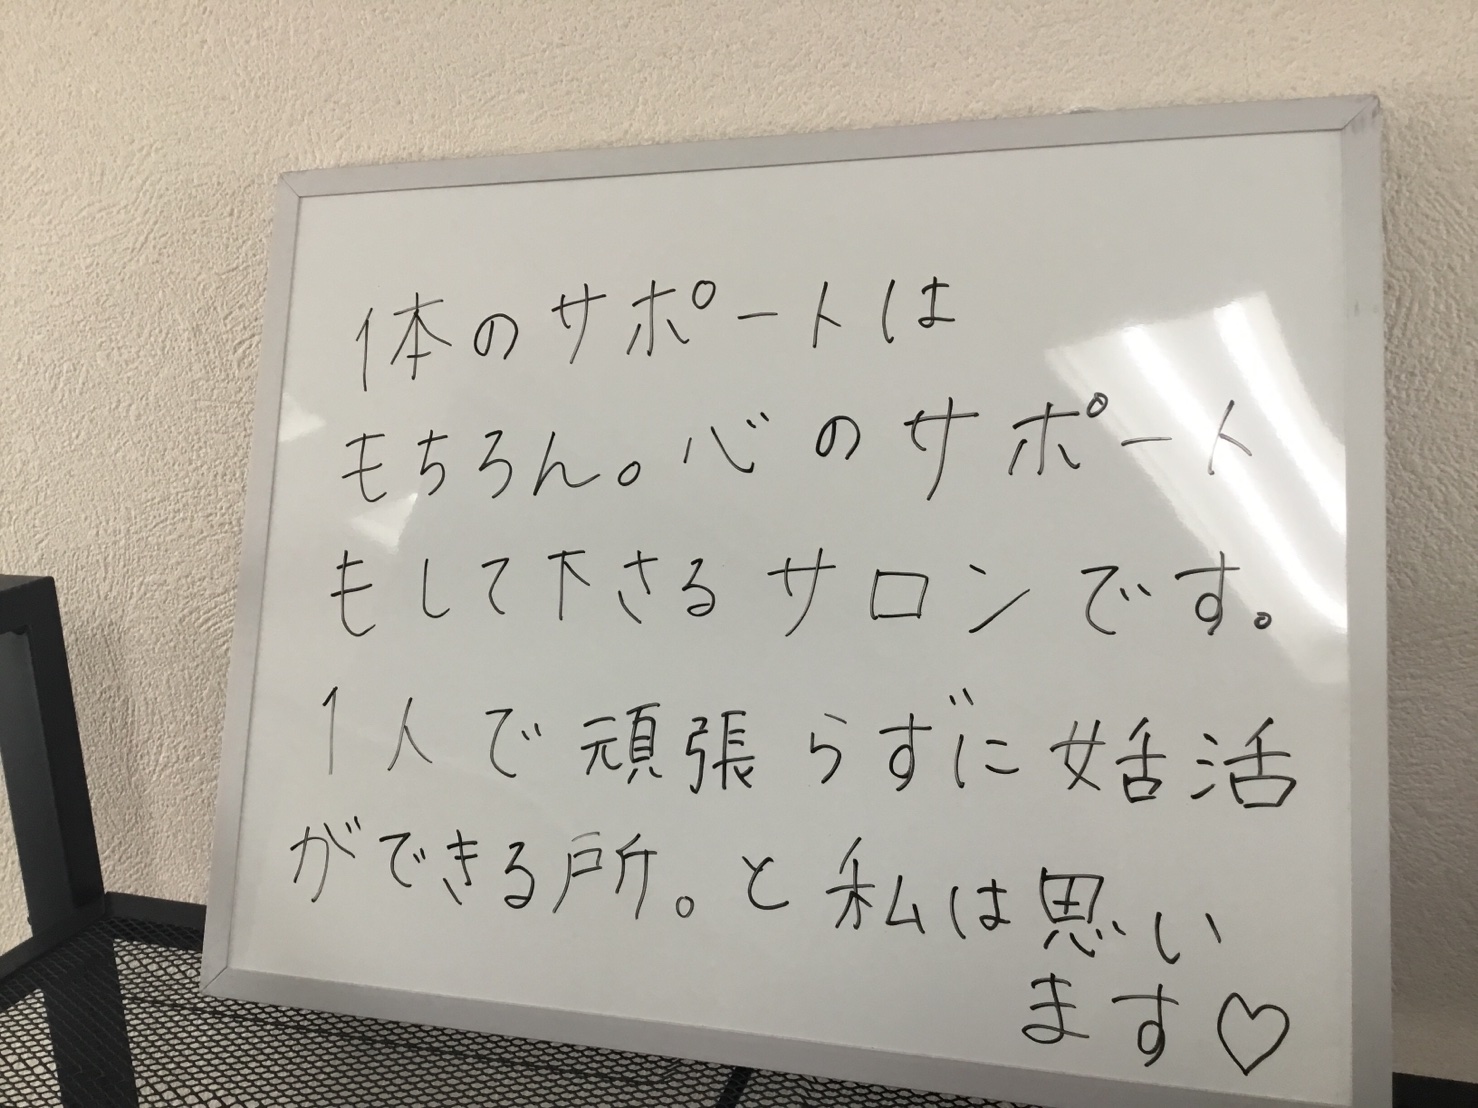 体のサポートは
もちろん。心のサポート
もして下さるサロンです。
1人で頑張らずに妊活
ができる所。と私は思い
ます♡